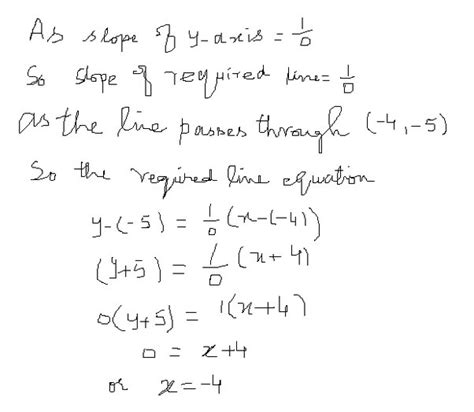 As slope of y-axis = 1/0
So slope of required line = 1/0
as the line passes through (-4, -5)
So the required line equation
y-(-5) = 1/0 (x-(-4))
(y+5) = 1/0 (x+4)
0(y+5) = 1(x+4)
0 = x+4
or x=-4